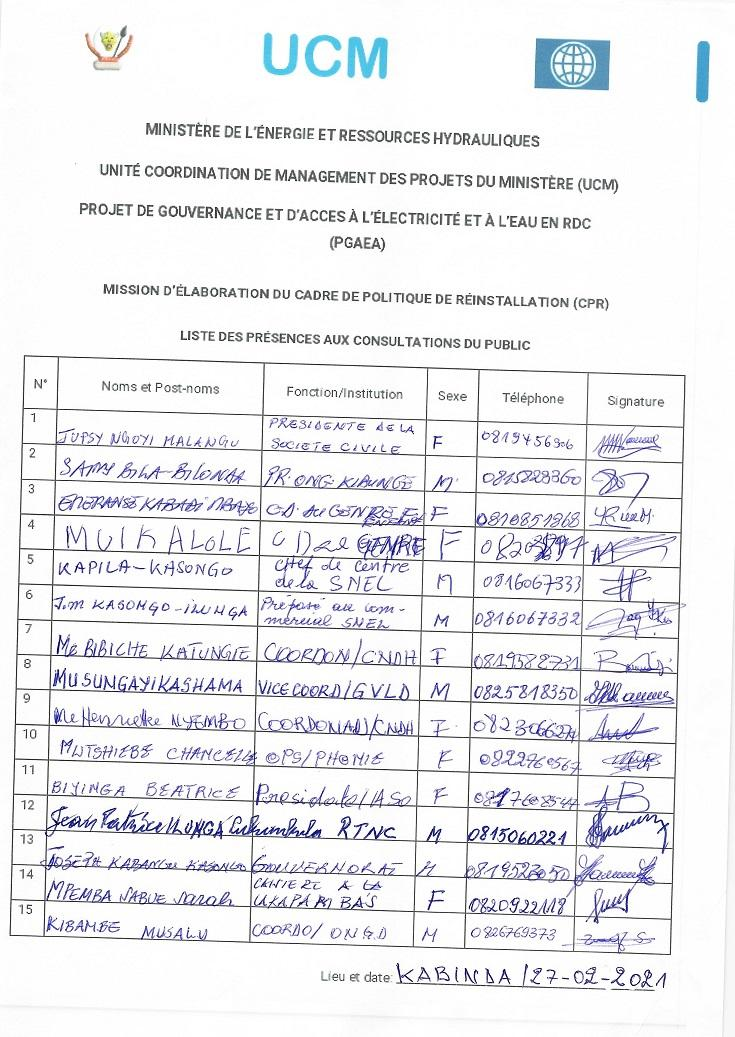 UCM
MINISTÈRE DE L'ÉNERGIE ET RESSOURCES HYDRAULIQUES
UNITÉ COORDINATION DE MANAGEMENT DES PROJETS DU MINISTÈRE (UCM)
PROJET DE GOUVERNANCE ET D'ACCES À L'ÉLECTRICITÉ ET À L'EAU EN RDC
(PGAEA)
MISSION D'ÉLABORATION DU CADRE DE POLITIQUE DE RÉINSTALLATION (CPR)
LISTE DES PRÉSENCES AUX CONSULTATIONS DU PUBLIC
N° Noms et Post-noms Fonction/Institution Sexe Téléphone Signature
1 JUPSY NGOYI MALANGU PRESIDENTE DE LA SOCIETE CIVILE F
2 SAMY BILA-BILONDA PR. ONG. KIBUNGE M 0815829360
3 KABADI CD. AU GENRE F 0810851968
4 MUIKALOLE CD GENRE F
5 KAPILA-KASONGO Chef de centre de la SNEL M 0816067333
6 Jim KASONGO-ILUNGA Préposé au commercial SNEL M 0816067332
7 Me BIBICHE KATUNGIE COORDON/CNDH F 0819588731
8 MUSUNGAYI KASHAMA VICE COORD/GVLD M 0825818350
9 Me Henriette NYEMBO COORDONAD/CNDH F
10 MUTSHIEBE OPS/PHONIE F 0822760567
11 BIYINGA BEATRICE F
12 Jean Patrice ILUNGA RTNC M 0815060221
13 JOSEPH KABANGU KASONGO GOUVERNORAT M
14 MPEMBA SABUE Sarah F 0820922118
15 KIBAMBE MUSALU COORDO/ ONGD M 0826769373
Lieu et date: KABINDA /27-02-2021